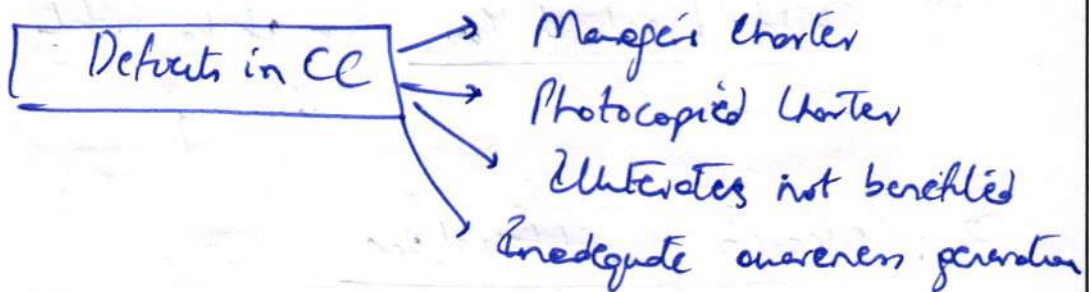 Defects in CC
Manager's Charter
Photocopied Charter
Illiterates not benefitted
Inadequate awareness generation